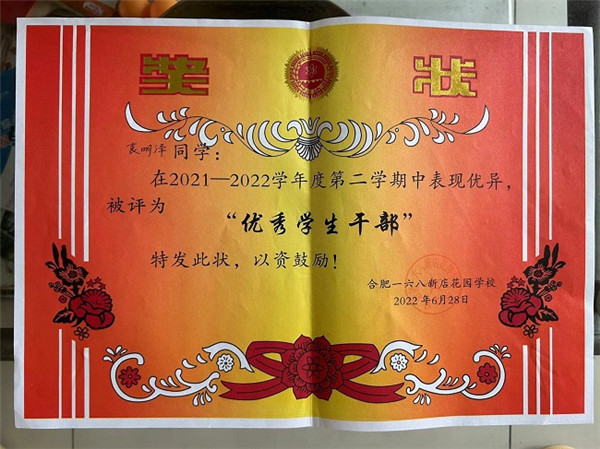 奖状
同学：
在2021—2022学年度第二学期中表现优异，
被评为
“优秀学生干部”
特发此状，以资鼓励！
合肥一六八新店花园学校
2022年6月28日